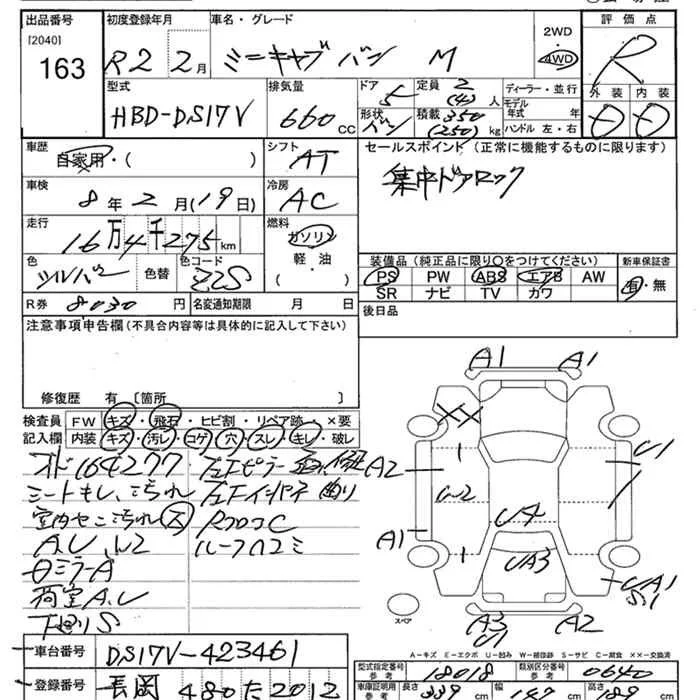 出品番号
[2040]
163
初度登録年月
R2 2月
車名・グレード
ミニキャブ バン M
2WD
・
4WD
評価点
R
外装 内装
型式
HBD-DS17V
排気量
660 CC
ドア
5
形状
バン
定員 2
(4)人
積載 350
(250)kg
ディーラー・並行
モデル
年式 年
ハンドル 左・右
車歴
自家用・( )
シフト
AT
車検
8年2月(19日)
冷房
AC
走行
16万4千275km
燃料
ガソリン
・
軽・油
( )
色
シルバー
色替
色コード
R券 8030円
名変通知期限 月 日
セールスポイント(正常に機能するものに限ります)
集中ドアロック
装備品(純正品に限り○をつけてください)
PS PW ABS エアB AW
SR ナビ TV カワ
新車保証書
有・無
後日品
注意事項申告欄(不具合内容等は具体的に記入して下さい)
修復歴 有〔箇所 〕
検査員
記入欄
FW キズ・飛石・ヒビ割・リペア跡・×要
内装 キズ・汚レ・コゲ・穴・スレ・キレ・破レ
164277
シートもし、汚れ
室内ヤニ汚れ
A.U
荷室A.U
下廻りS
左Fピラー
A1 A1
XX
1
U1
A2
A1
1
U4
UA3
UA1
S1
A3
U1
A2
スペア
A-キズ E-エクボ U-凹み W-補修跡 S-サビ C-腐食 ××-交換済
車台番号
DS17V-423461
登録番号
長岡 480 た 2012
型式指定番号
参考
18018
類別区分番号
参考
0640
車庫証明用
参考
長さ
339 cm
幅
cm
高さ
cm